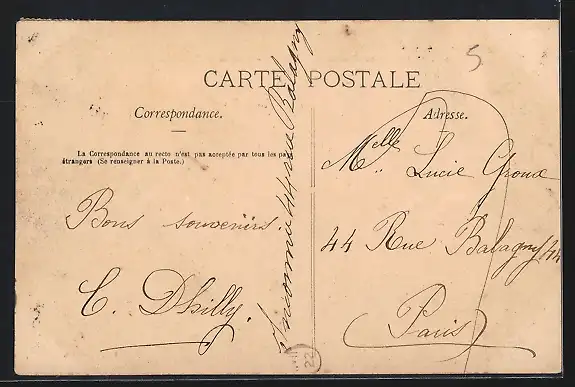 5
CARTE POSTALE
Correspondance.
Adresse.
La Correspondance au recto n'est pas acceptée par tous les pays
étrangers (Se renseigner à la Poste.)
Bons souvenirs.
C. Dhilly.
Inconnue 44 rue Balagny
Melle Lucie Groux
44 Rue Balagny 44
(Paris)
22